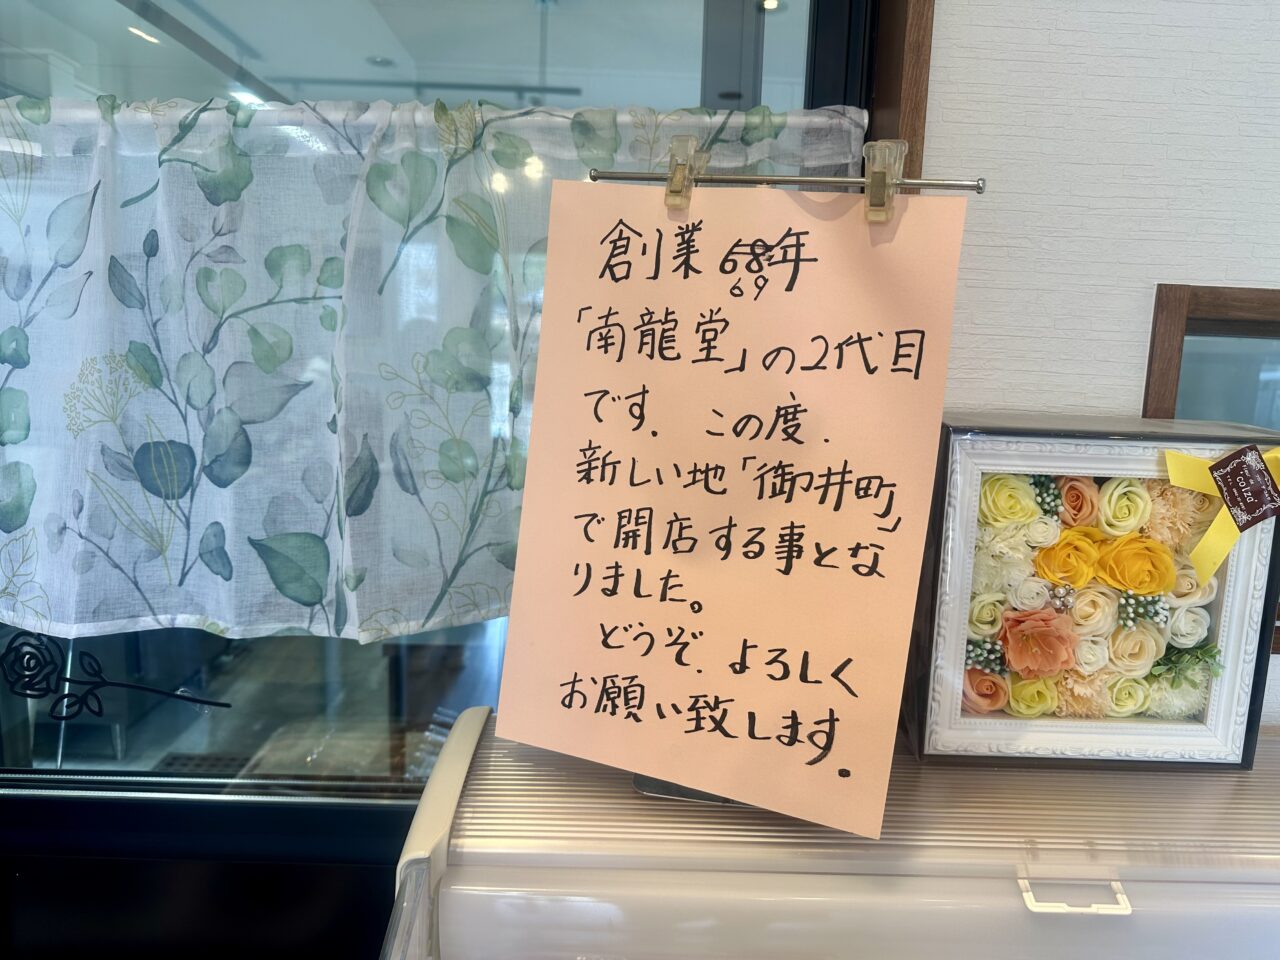 創業68年
69
「南龍堂」の2代目
です. この度.
新しい地「御井町」
で開店する事とな
りました。
どうぞ. よろしく
お願い致します.
colza